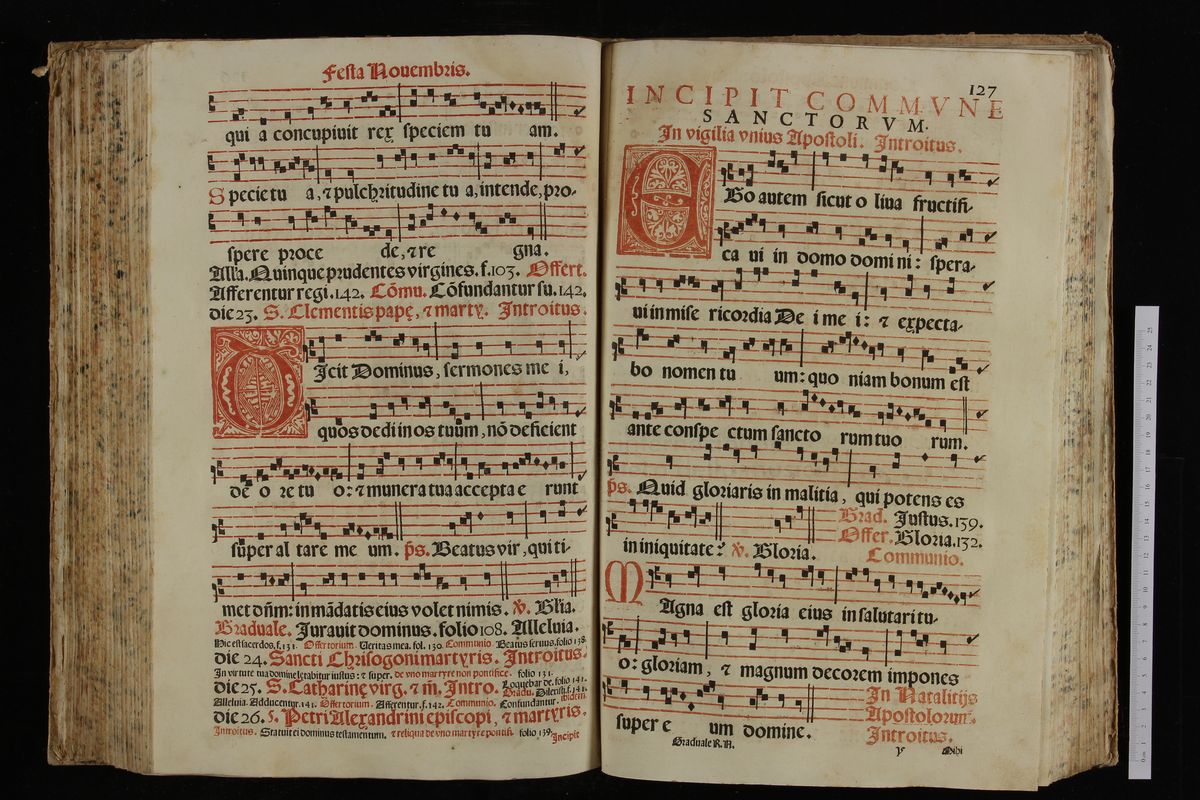 Festa Nouembris.
qui a concupiuit rex speciem tu am.
Specie tu a, ⁊ pulchritudine tu a, intende, pro-
spere proce de, ⁊ re gna.
Alľa. Quinque prudentes virgines. f. 103. Offert.
Afferentur regi. 142. Cõmu. Cõfundantur su. 142.
die 23. S. Clementis papę, ⁊ marty. Introitus.
DIcit Dominus, sermones me i,
quos dedi in os tuum, nõ deficient
de o re tu o: ⁊ munera tua accepta e runt
super al tare me um. p̃s. Beatus vir, qui ti-
met dñm: in mãdatis eius volet nimis. ℣. Glľia.
Graduale. Iurauit dominus. folio 108. Alleluia.
Hic est sacerdos, f. 131. Offertorium. Veritas mea. fol. 130. Communio. Beatus seruus. folio 138
die 24. Sancti Chrisogoni martyris. Introitus.
In virtute tua domine lętabitur iustus: ⁊ super. de vno martyre non pontifice. folio 131.
die 25. S. Catharinę virg. ⁊ m̃. Intro. Loquebar de. folio 141.
Gradu. Dilexisti. f. 141.
Alleluia. Adducentur. 141. Offertorium. Afferentur, f. 142. Communio. Confundantur. ibidem.
die 26. S. Petri Alexandrini episcopi, ⁊ martyris.
Introitus. Statuit ei dominus testamentum. ⁊ reliqua de vno martyre pontifi. folio 139.
Incipit
127
INCIPIT COMMVNE
SANCTORVM.
In vigilia vnius Apostoli. Introitus.
EGo autem sicut o liua fructifi-
ca ui in domo domi ni: spera-
ui in mise ricordia De i me i: ⁊ expecta-
bo nomen tu um: quo niam bonum est
ante conspe ctum sancto rum tuo rum.
p̃s. Quid gloriaris in malitia, qui potens es
in iniquitate? ℣. Gloria.
Grad. Iustus. 139.
Offer. Gloria. 132.
Communio.
MAgna est gloria eius in salutari tu-
o: gloriam, ⁊ magnum decorem impones
super e um domine.
In Natalitijs
Apostolorum.
Introitus.
Graduale R. A.
y
Mihi